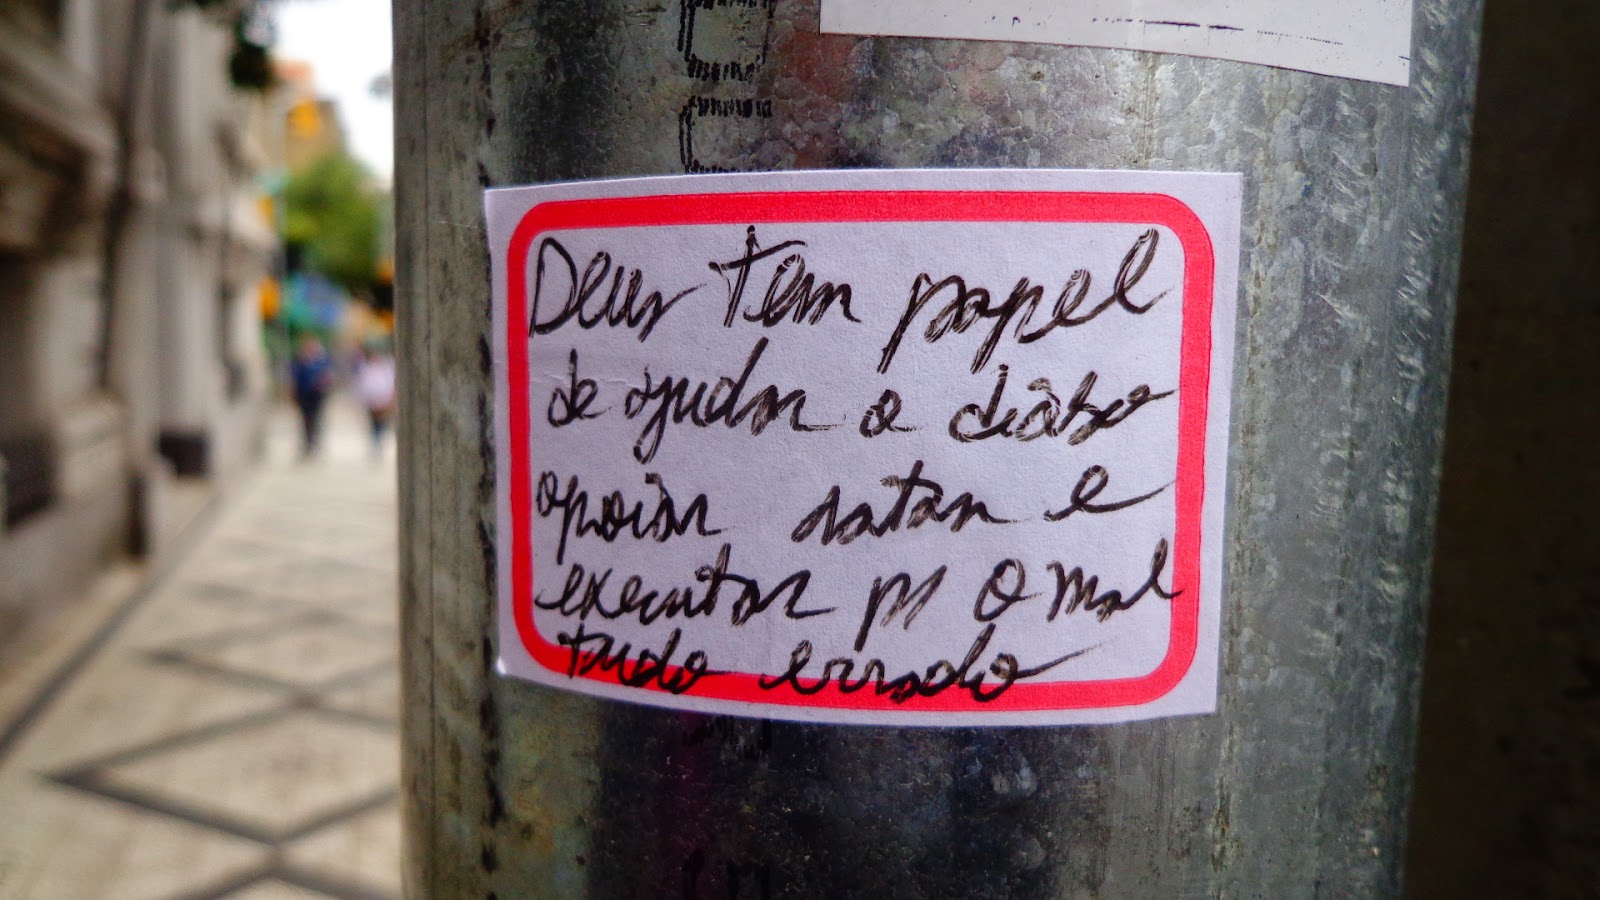 Deus tem papel
de ajudar o diabo
apoiar satan e
executar p/ o mal
tudo errado